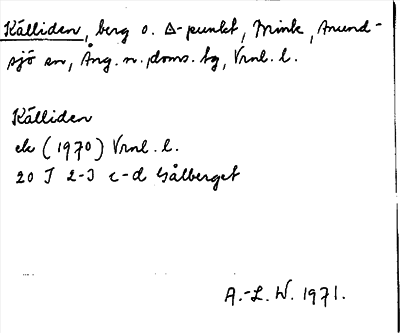 Källiden, berg o. Δ-punkt, Mink, Anund-
sjö sn, Ång. n. doms. tg, Vrnl. l.
Källiden
ek (1970) Vrnl. l.
20 J 2-3 c-d Gålberget
A.-L. W. 1971.